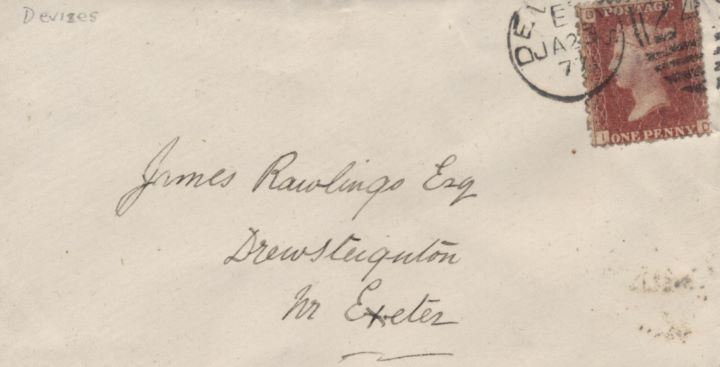 Devizes
DE
E
JA23
77
POSTAGE
ONE PENNY
James Rawlings Esq
Drewsteignton
Nr Exeter